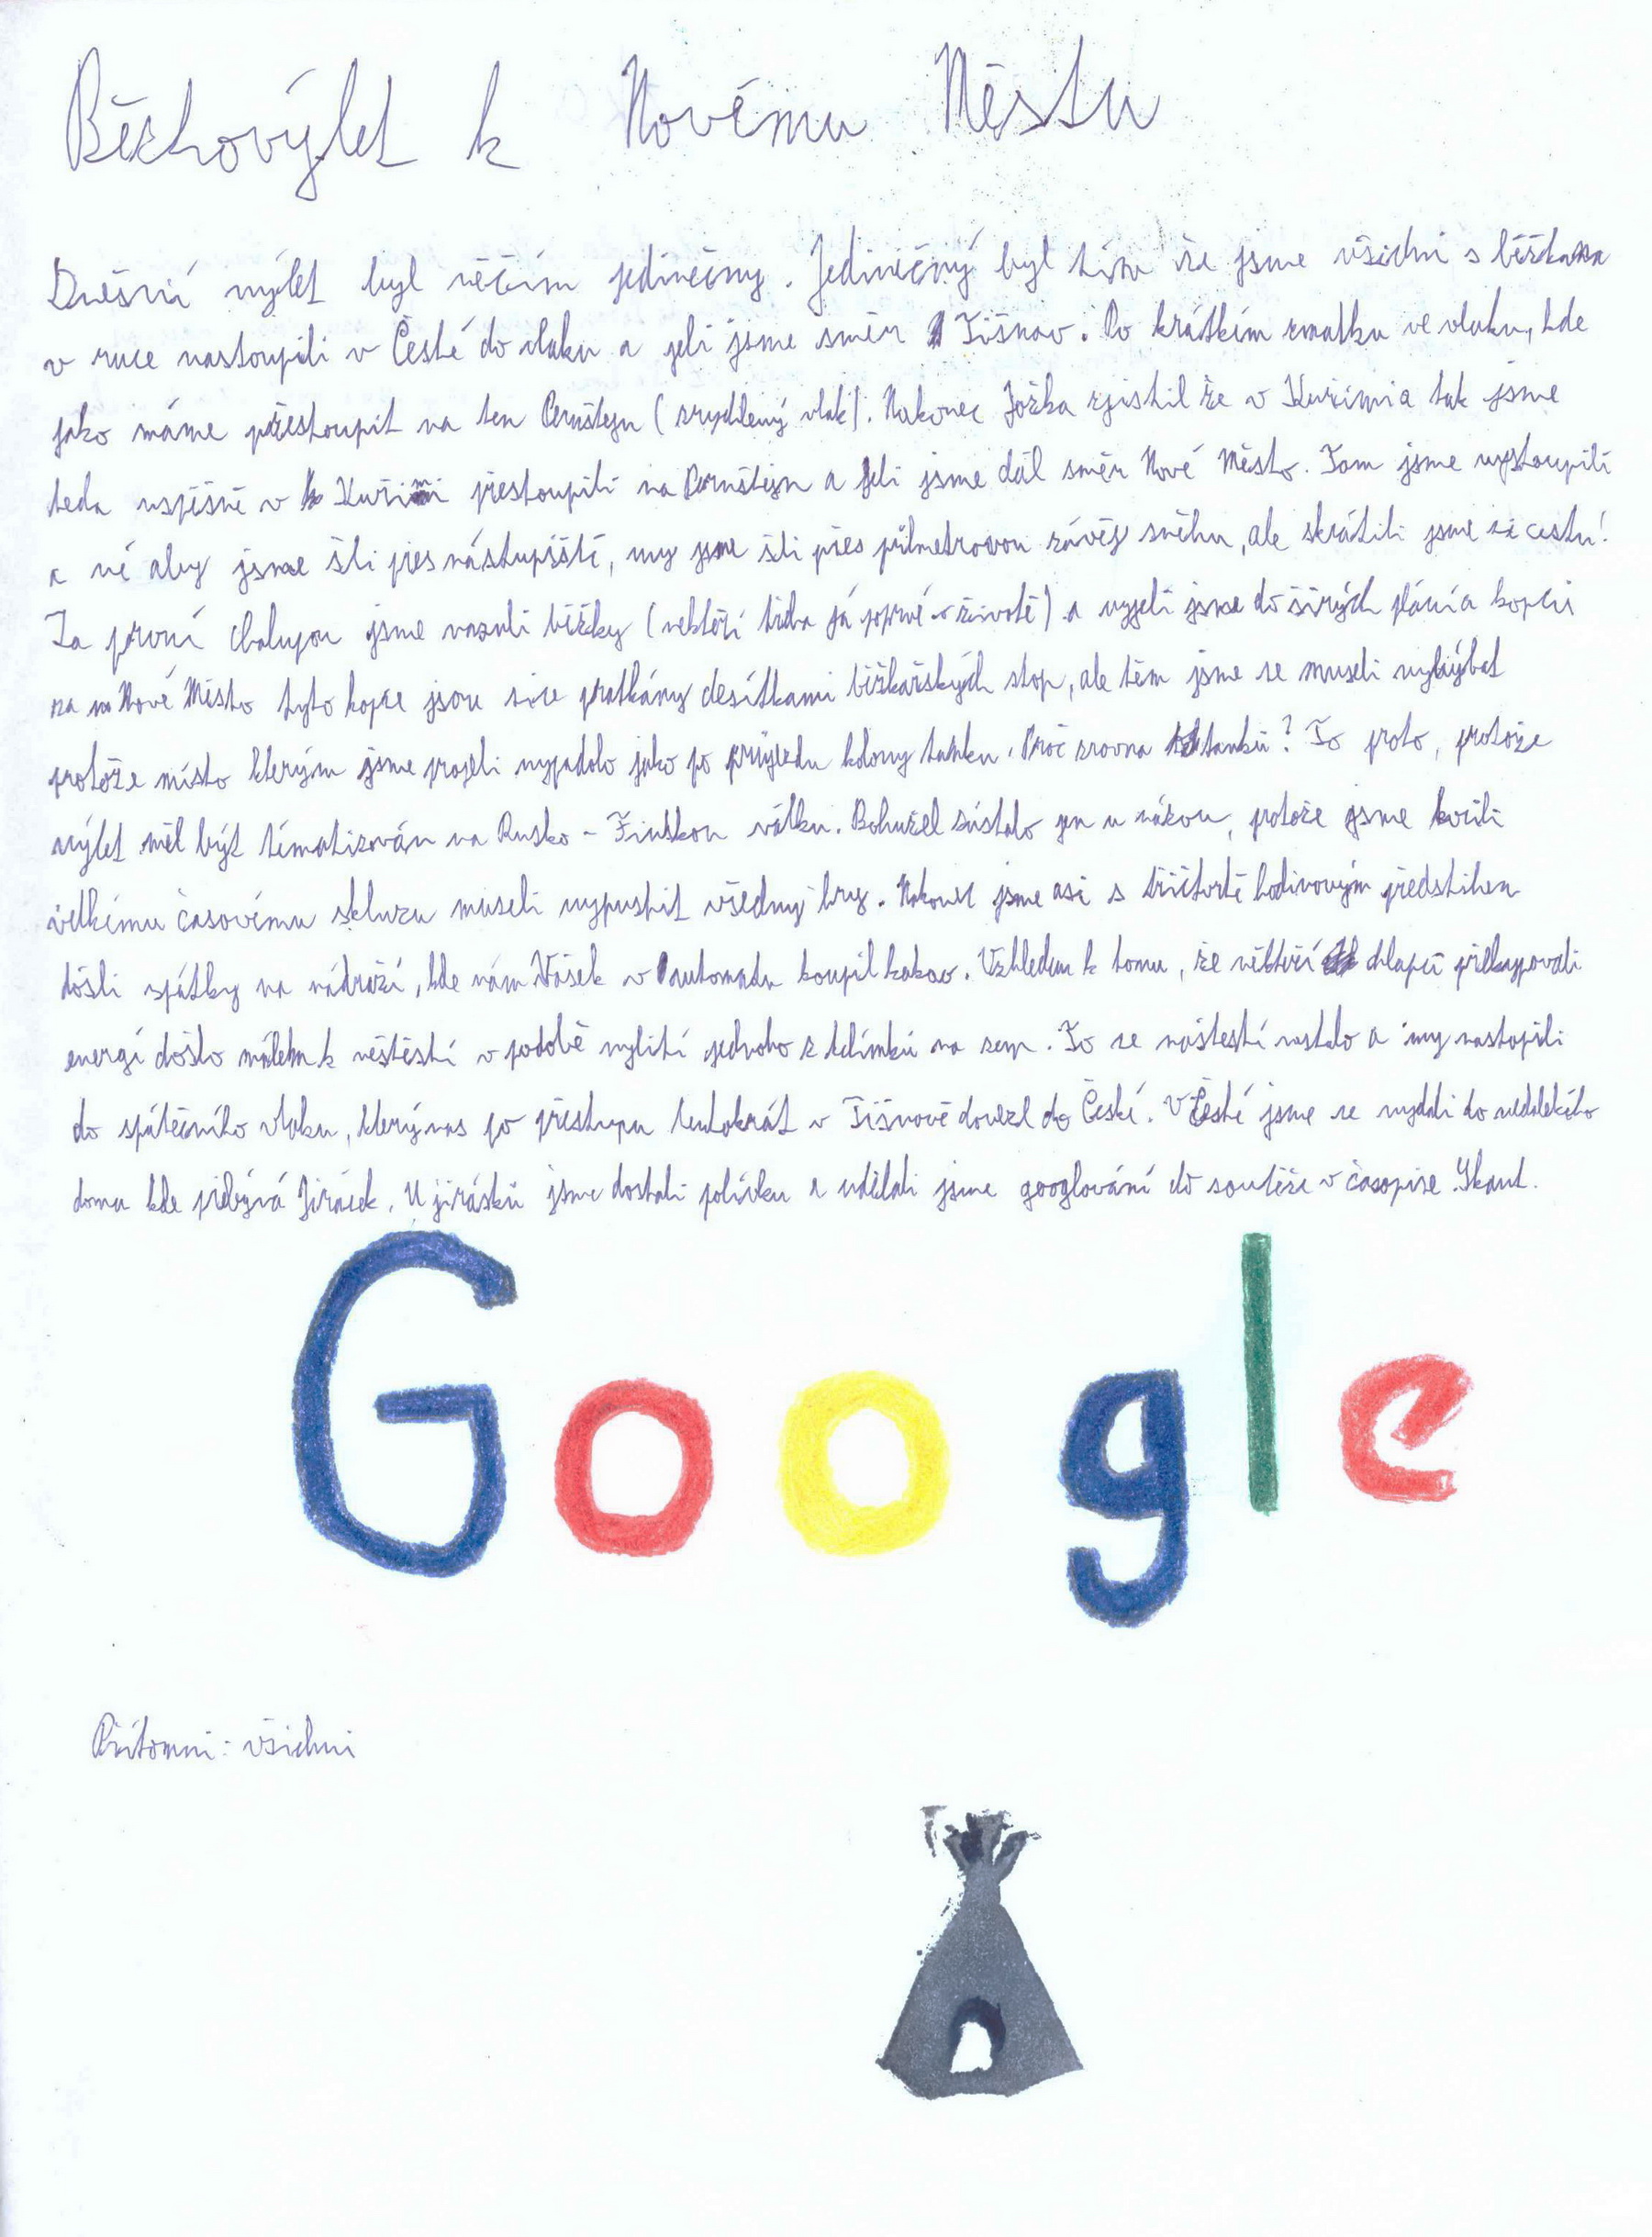 Běžkovýlet k Novému Městu
Dnešní výlet byl něčím jedinečny. Jedinečný byl tím že jsme všichni s běžkama
v ruce nastoupili v České do vlaku a jeli jsme směr Tišnov. Po krátkém zmatku ve vlaku, kde
jako máme přestoupit na ten Pernštejn (zrychlený vlak). Nakonec Jožka zjistil že v Kuřimi a tak jsme
teda uspěšně v Kuřimi přestoupili na Pernštejn a jeli jsme dál směr Nové Město. Tam jsme vystoupili
a né aby jsme šli přes nástupiště, my jsme šli přes půlmetrovou závěj sněhu, ale skrátili jsme si cestu!
Za první chalupou jsme nazuli běžky (někteří třeba já poprvé v životě) a vyjeli jsme do širých plání a kopců
na Nové Město tyto kopce jsou sice protkány desítkami běžkařských stop, ale těm jsme se museli vyhýbat
protože místo kterým jsme projeli vypadalo jako po průjezdu kolony tanku. Proč zrovna tanků? To proto, protože
výlet měl být tématizován na Rusko - Finskou válku. Bohužel zústalo jen u názvu, protože jsme kvůli
velkému časovému skluzu museli vypustit všechny hry. Nakonec jsme asi s tříčtvrtě hodinovým předstihem
došli spátky na nádraží, kde nám Vašek v automatu koupil kakao. Vzhledem k tomu, že někteří chlapci překypovali
energí došlo málem k neštěstí v podobě vylití jednoho z kelímků na zem. To se naštestí nestalo a my nastopili
do spátečního vlaku, který nas po přestupu tentokrát v Tišnově dovezl do České. V České jsme se vydali do nedalekého
domu kde přebývá Jirásek. U jirásků jsme dostali polévku a udělali jsme googlování do soutěže v časopise Skaut.
Google
Přítomni: všichni